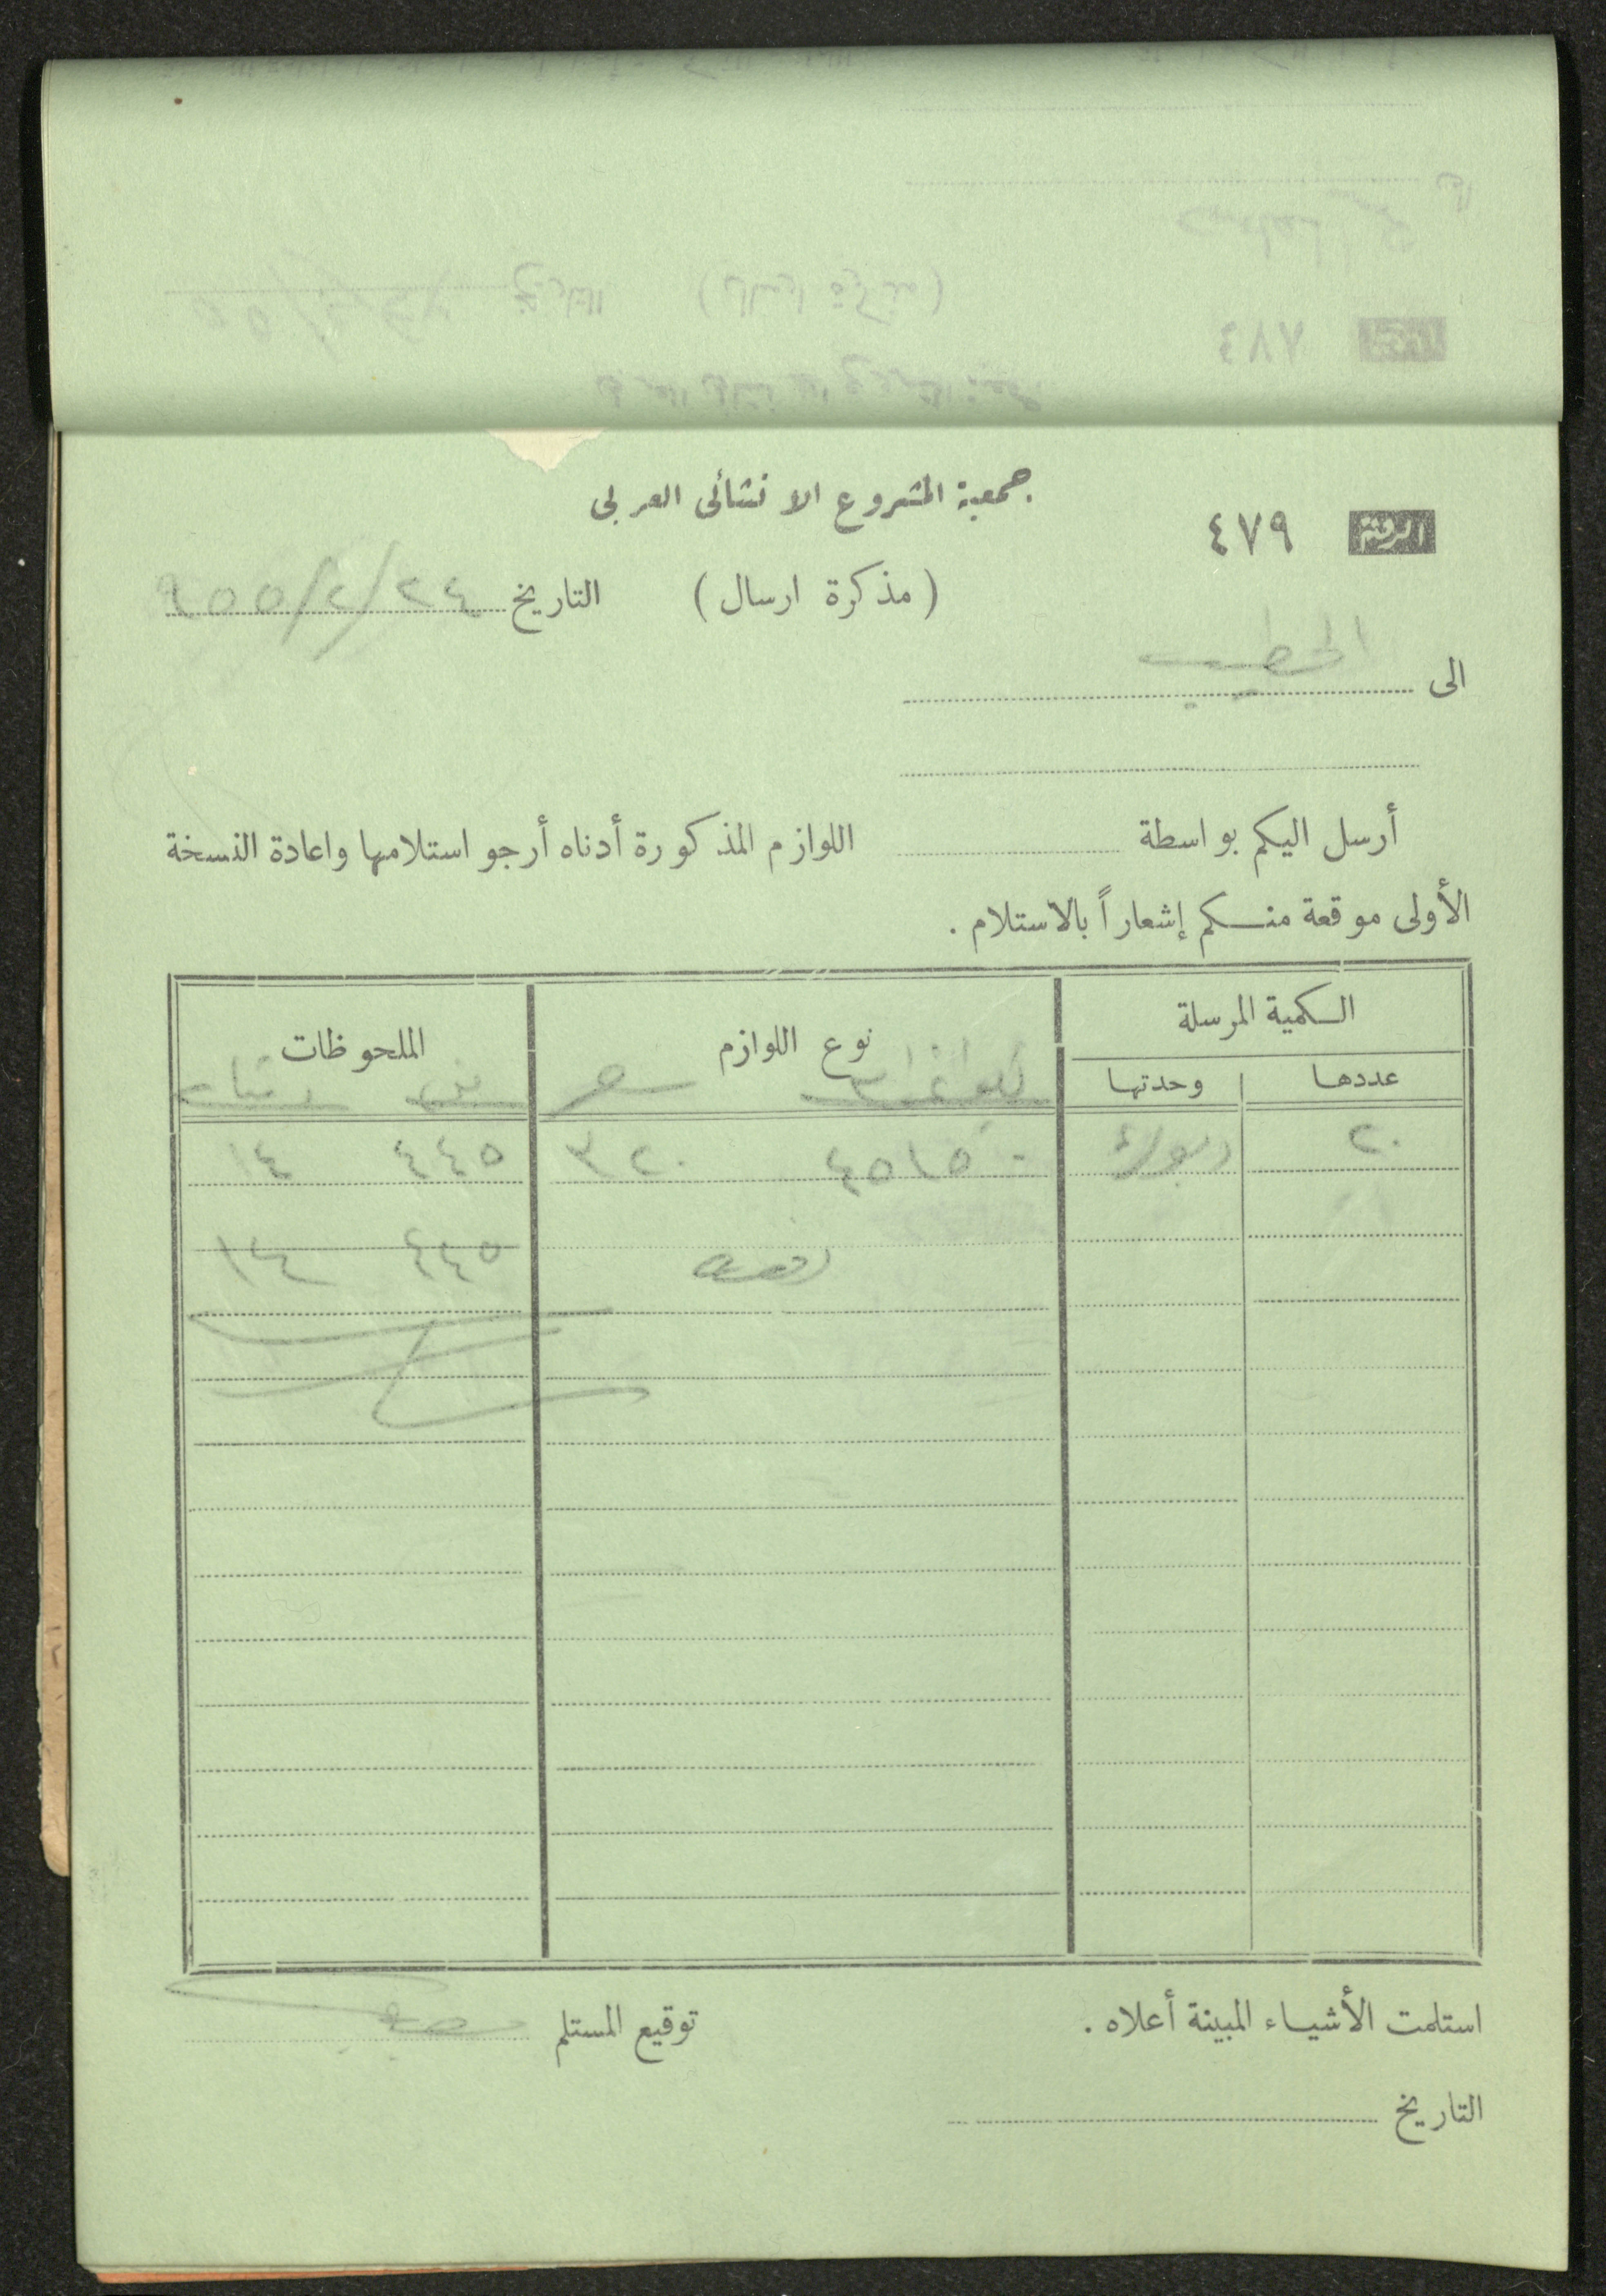 جمعية المشروع الانشائى العربى
الرقم ٤٧٩
(مذكرة ارسال) التاريخ ٢٤/٢/٩٥٥
الى الخطيب
أرسل اليكم بواسطة اللوازم المذكورة أدناه أرجو استلامها واعادة النسخة
الأولى موقعة منكم إشعاراً بالاستلام .
الكمية المرسلة نوع اللوازم الملحوظات
عددها وحدتها
سعر
٢٠ ٤٥١٥٠ ٣٢٠ ٤٤٥ ١٤
٤٤٥ ١٤
استلمت الأشياء المبينة أعلاه . توقيع المستلم
التاريخ